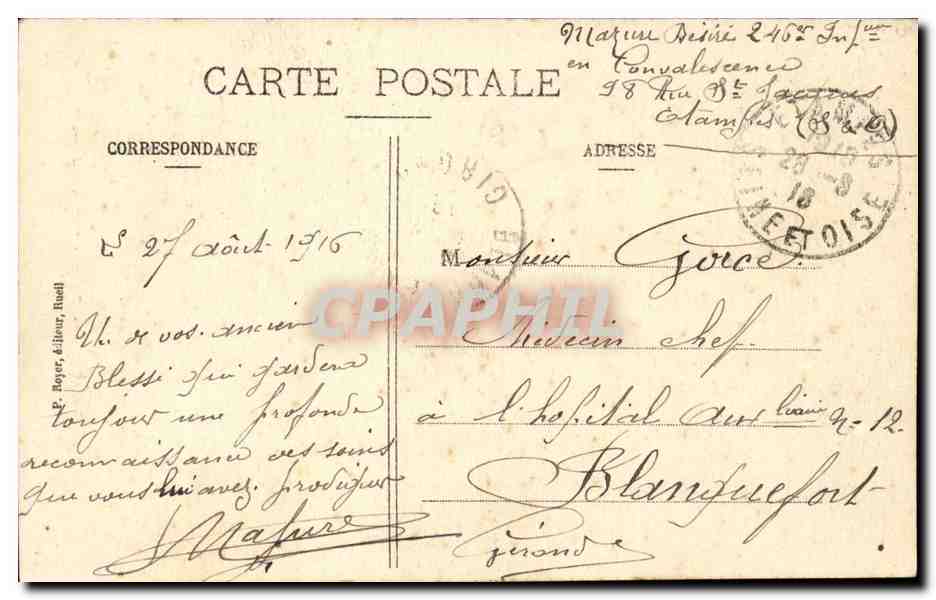 Mazure Désiré 246e Infrie
en Convalescence
98 Rue St Jacques
Etampes (S & O)
CARTE POSTALE
CORRESPONDANCE
ADRESSE
ET OISE
GIR
Le 27 août 1916
Un de vos ancien
Blessé qui gardera
toujour une profonde
reconnaissance des soins
que vous lui avez prodiguer
Mazure
Monsieur Gorce
Médecin chef
à l'hopital auxiliaire No 12.
Blanquefort
Gironde
P. Royer, éditeur, Rueil
CPAPHIL